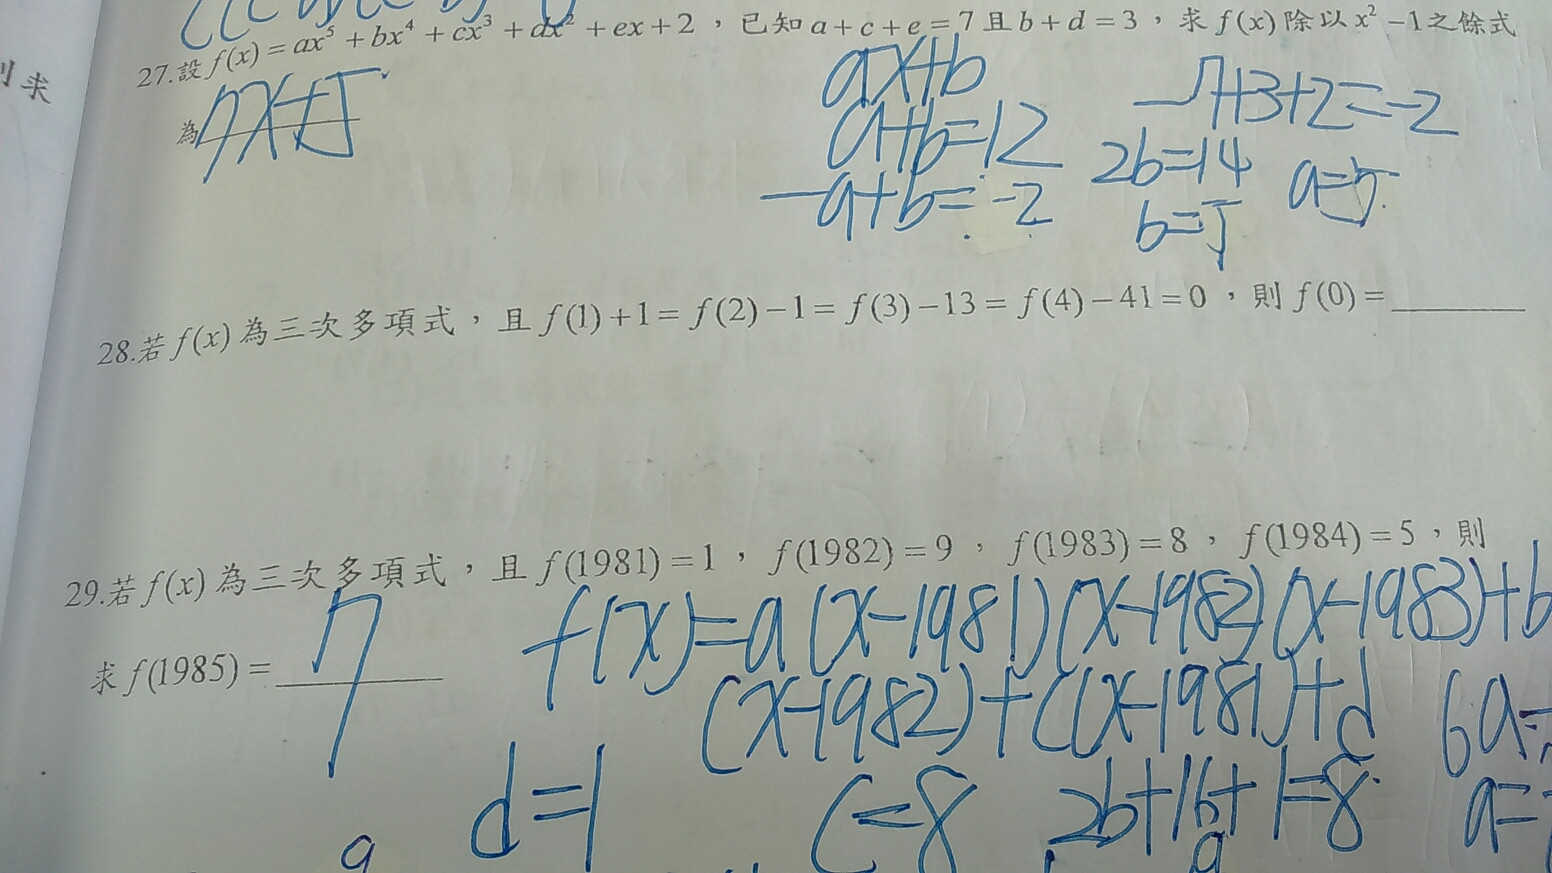 27.設 f(x) = ax⁵ + bx⁴ + cx³ + dx² + ex + 2，已知 a + c + e = 7 且 b + d = 3，求 f(x) 除以 x² − 1 之餘式
為 7x+5
ax+b
a+b=12
-a+b=-2
-7+3+2=-2
2b=14 a=5
b=5
則求
28.若 f(x) 為三次多項式，且 f(1) + 1 = f(2) − 1 = f(3) − 13 = f(4) − 41 = 0，則 f(0) =
29.若 f(x) 為三次多項式，且 f(1981) = 1，f(1982) = 9，f(1983) = 8，f(1984) = 5，則
求 f(1985) = 7
f(x)=a(x-1981)(x-1982)(x-1983)+b
(x-1982)+c(x-1981)+d 6a=
d=1 c=8 2b+16+1=8 a=